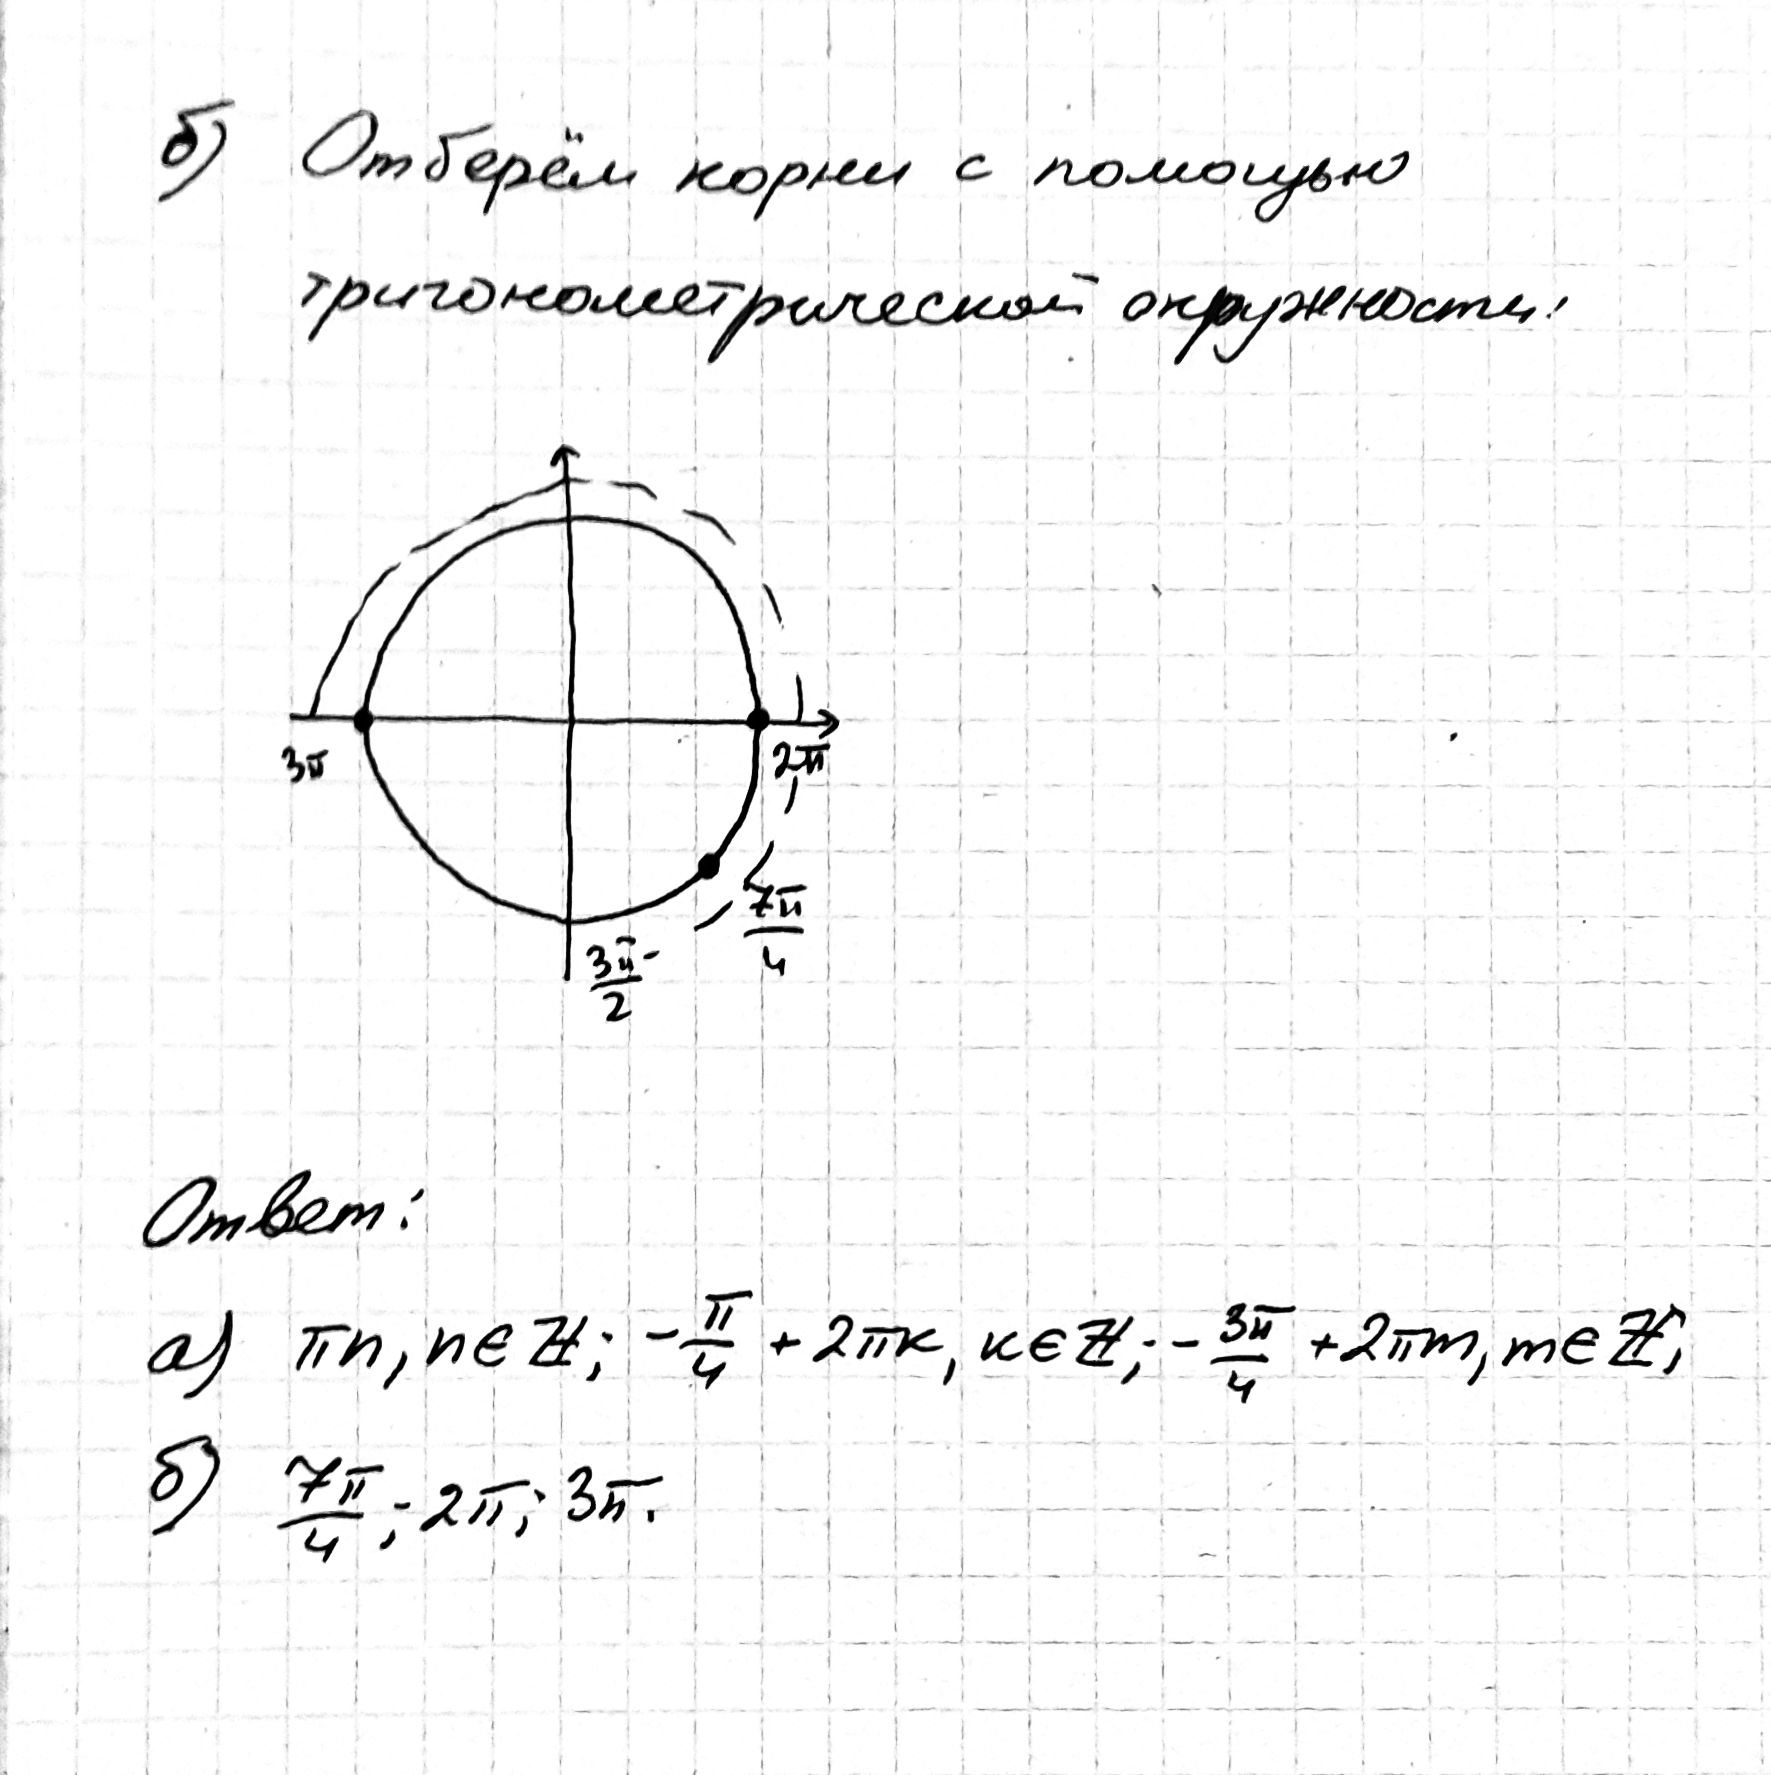 б) Отберём корни с помощью
тригонометрической окружности:
3π
2π
7π/4
3π/2
Ответ:
а) πn, n∈ℤ; -π/4 + 2πk, k∈ℤ; -3π/4 + 2πm, m∈ℤ;
б) 7π/4; 2π; 3π.